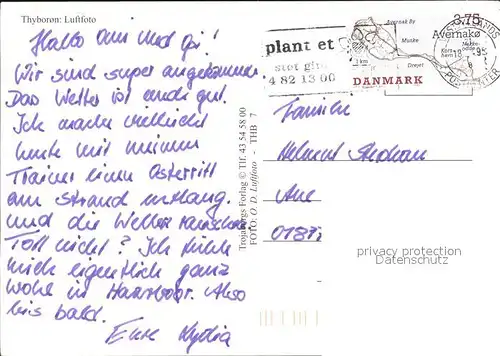 Thyborøn: Luftfoto
Hallo Omi und Opi!
Wir sind super angekommen.
Das Wetter ist auch gut.
Ich mache vielleicht
heute mit meinem
Trainer einen Osterritt
am Strand entlang.
und die Wellen rauschen
Toll nicht? Ich fühle
mich eigentlich ganz
wohl in Also
bis bald.
Eure Lydia
Trojaborgs Forlag © Tlf. 43 54 58 00
FOTO: O. D. Luftfoto - THB 7
plant et
støt
4 82 13 00
3.75
Avernakø
Avernak By
Munke
Drejet
1 km
DANMARK
Familie
Helmut
Aue
privacy protection
Datenschutz